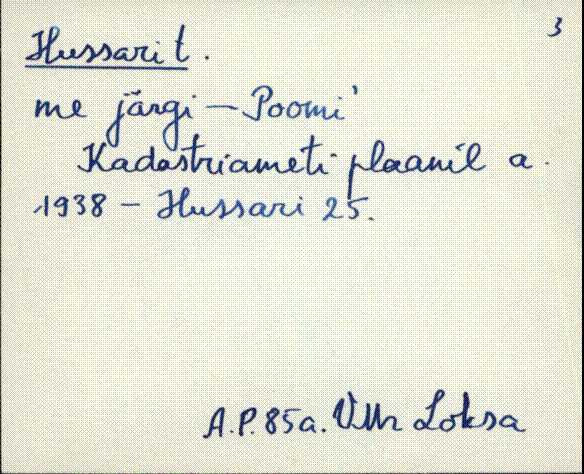 3
Hussari t.
me järgi – Poomi'
Kadastriameti plaanil a.
1938 – Hussari 25.
A.P. 85a. Loksa